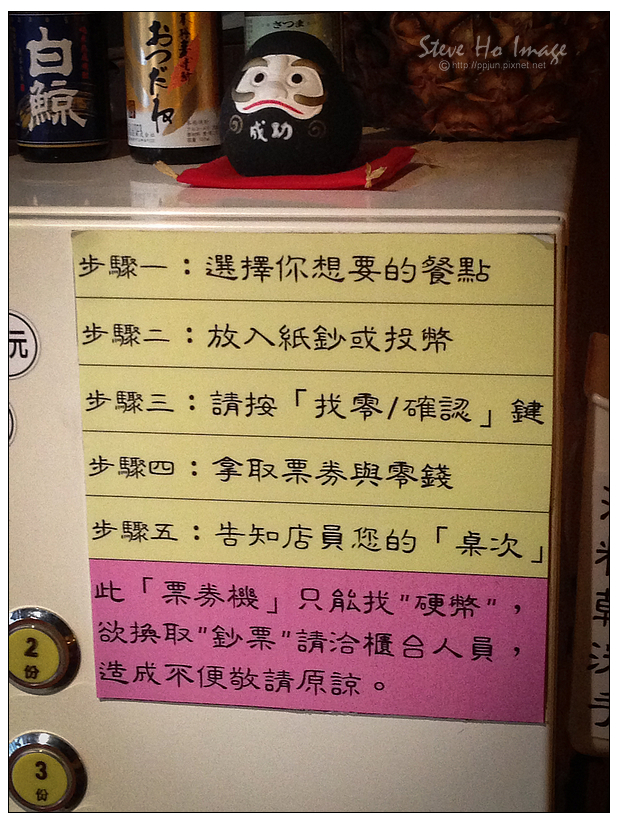 Steve Ho Image
© http://ppjun.pixnet.net
さつま
白鯨
おつだね
成功
步驟一：選擇你想要的餐點
步驟二：放入紙鈔或投幣
元
步驟三：請按「找零/確認」鍵
步驟四：拿取票券與零錢
步驟五：告知店員您的「桌次」
此「票券機」只能找"硬幣"，
欲換取"鈔票"請洽櫃台人員，
造成不便敬請原諒。
2
份
3
份